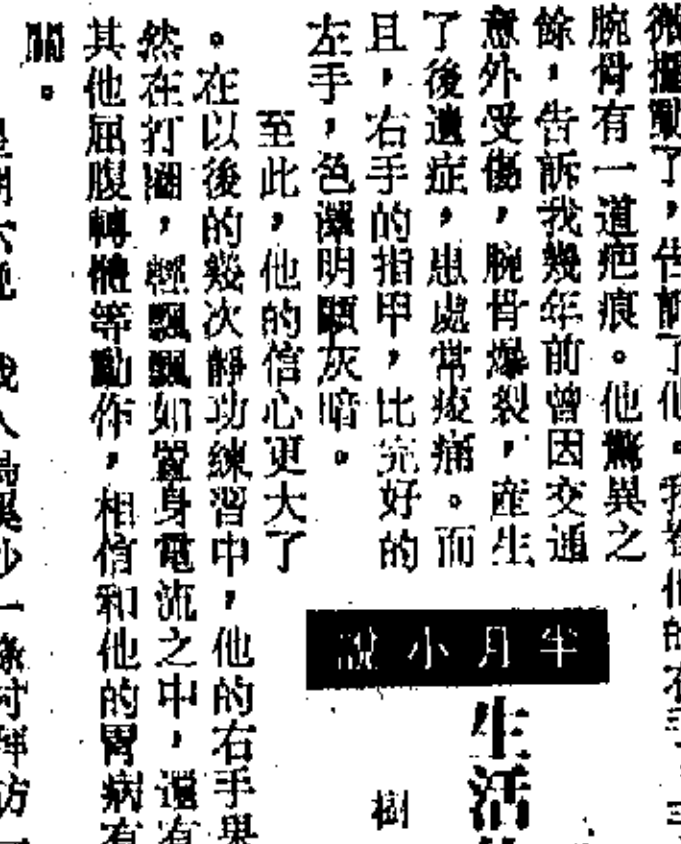 了，告訴了他。我
腕骨有一道疤痕。他驚異之
餘，告訴我幾年前曾因交通
意外受傷，腕骨爆裂，産生
了後遺症，患處常痠痛。而
且，右手的指甲，比完好的
左手，色澤明顯灰暗。
至此，他的信心更大了
。在以後的幾次靜功練習中，他的右手果
然在打圈，輕飄飄如置身電流之中，還有
其他屈腹轉體等動作，相信和他的胃病有
關。
半月小說
生活
樹